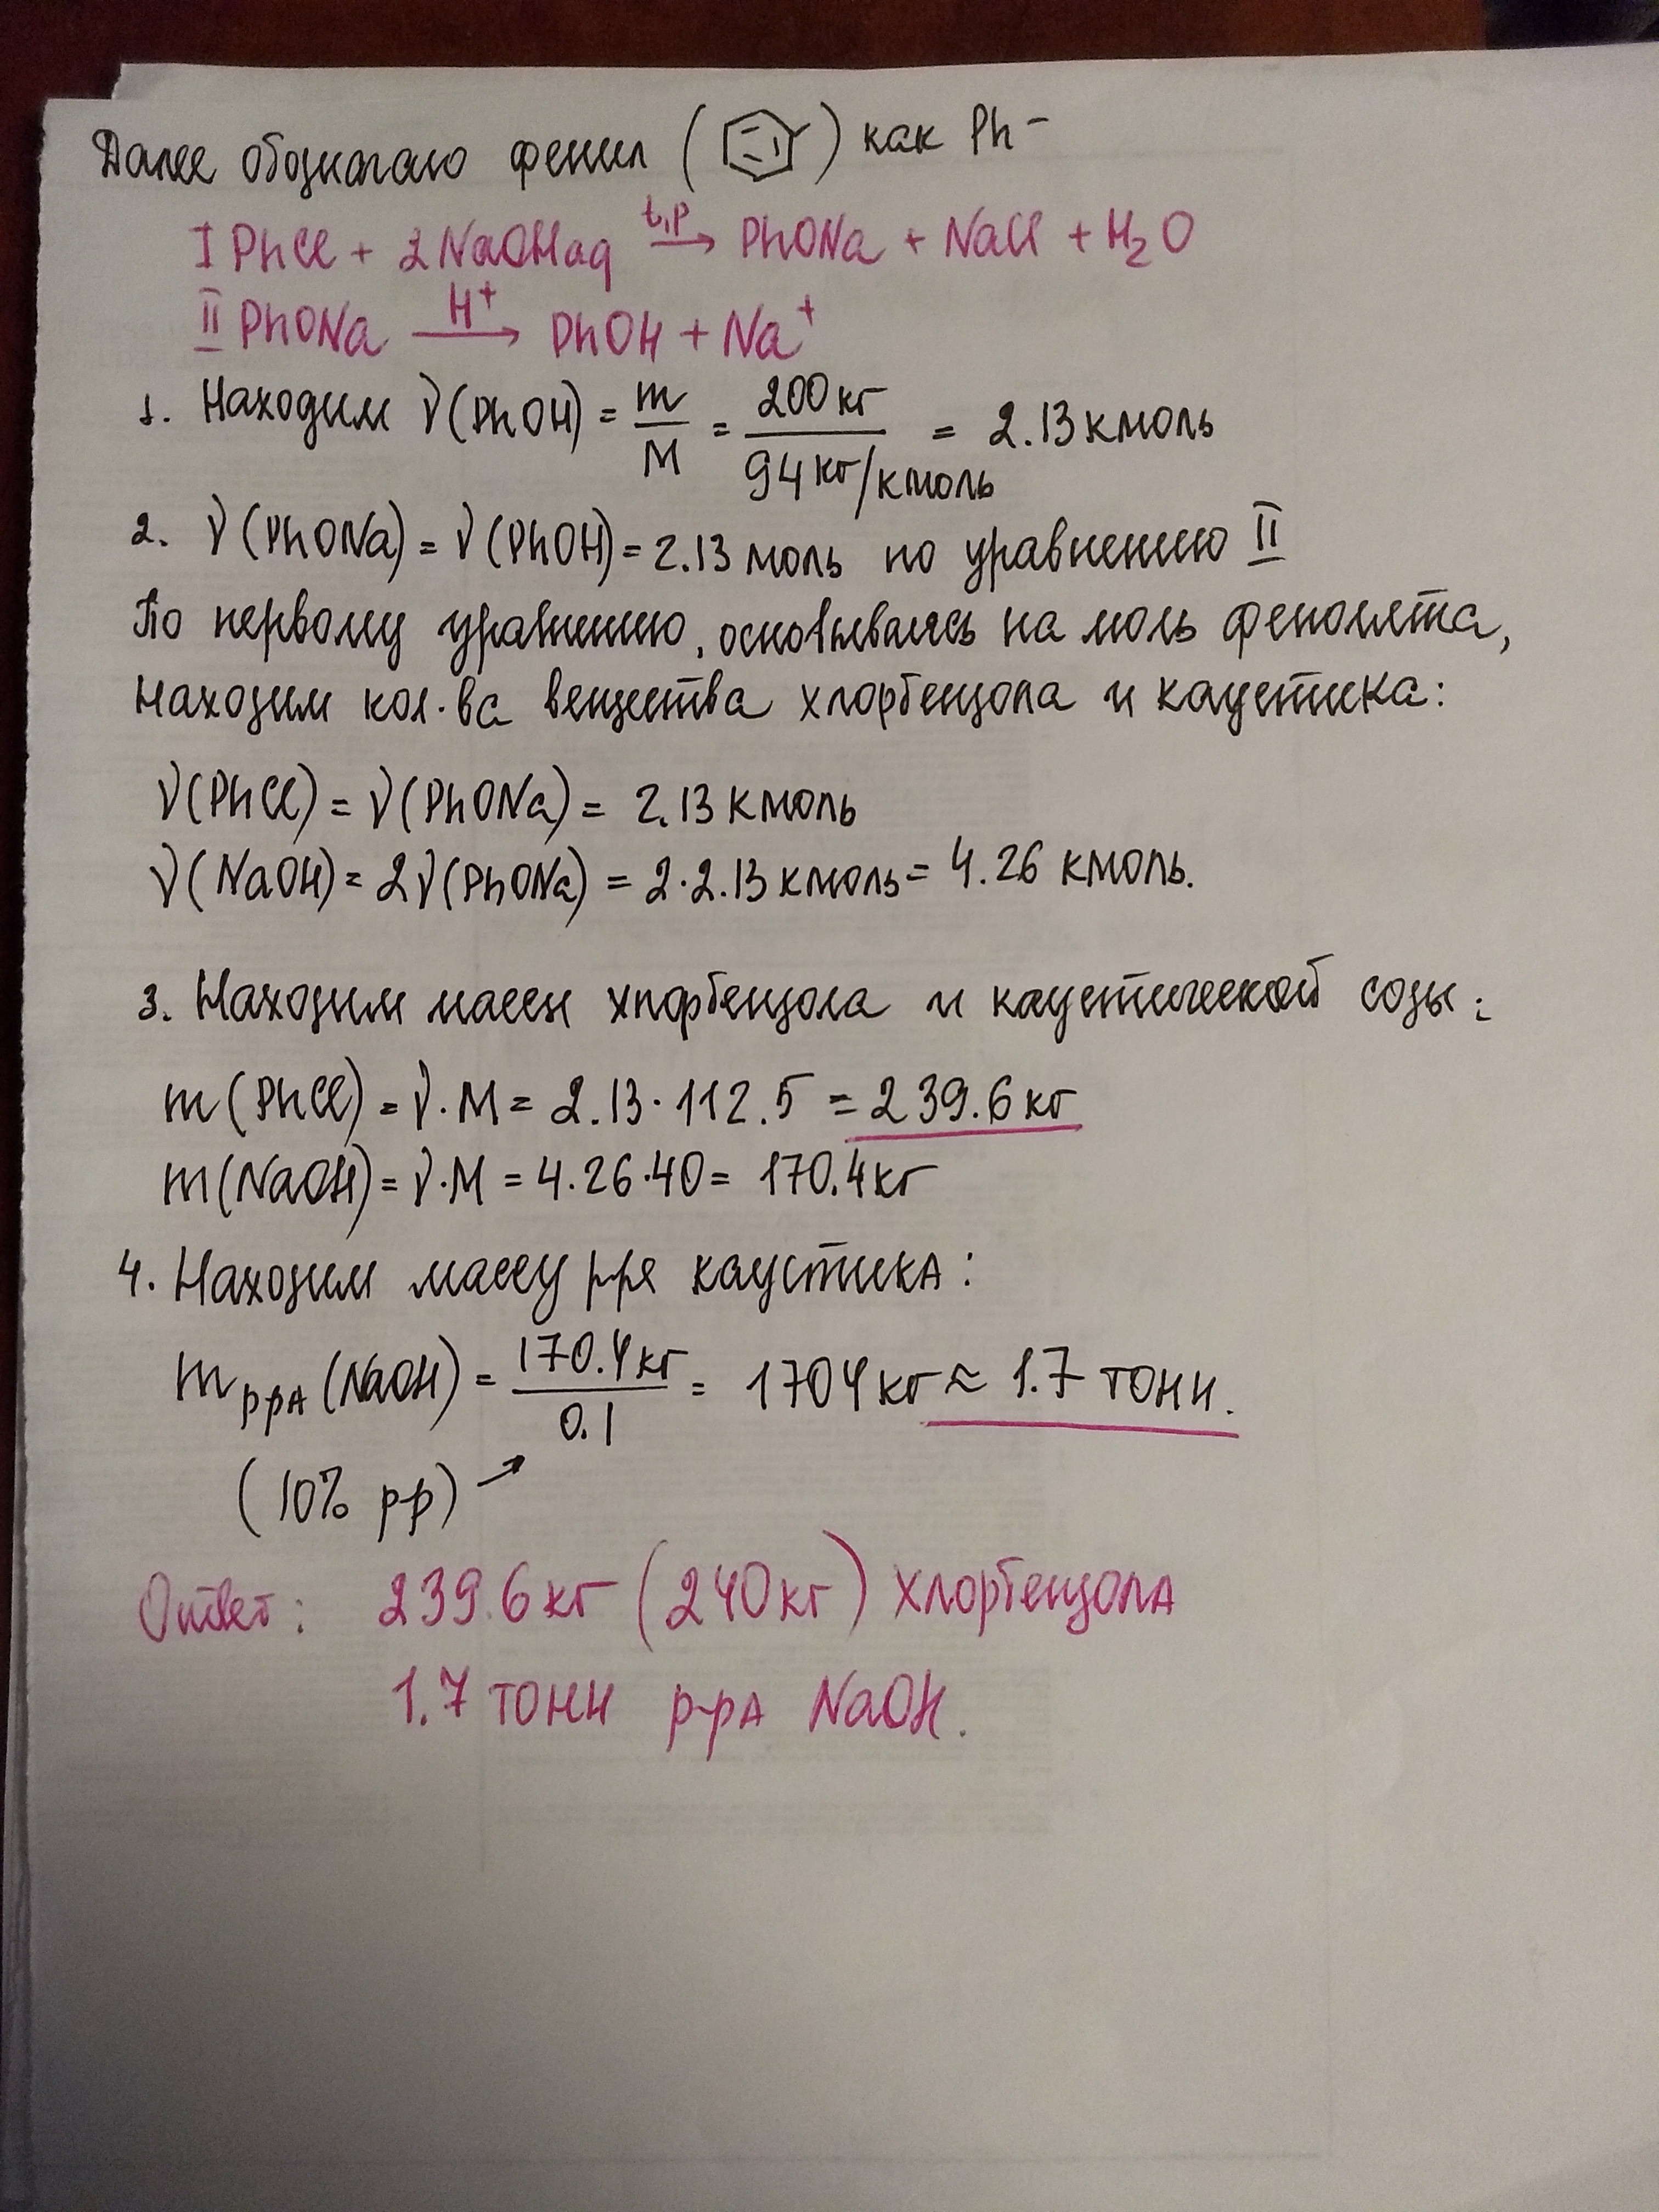 Далее обозначаю фенил ( ) как Ph-
I PhCl + 2NaOHaq t,p → PhONa + NaCl + H₂O
II PhONa H⁺ → PhOH + Na⁺
1. Находим ν(PhOH) = m/M = 200 кг / 94 кг/кмоль = 2.13 кмоль
2. ν(PhONa) = ν(PhOH) = 2.13 моль по уравнению II
По первому уравнению, основываясь на моль фенолята,
находим кол-ва вещества хлорбензола и каустика:
ν(PhCl) = ν(PhONa) = 2.13 кмоль
ν(NaOH) = 2ν(PhONa) = 2·2.13 кмоль = 4.26 кмоль.
3. Находим массы хлорбензола и каустической соды:
m(PhCl) = ν·M = 2.13·112.5 = 239.6 кг
m(NaOH) = ν·M = 4.26·40 = 170.4 кг
4. Находим массу р-ра каустика:
m р-ра (NaOH) = 170.4 кг / 0.1 = 1704 кг ≈ 1.7 тонн.
(10% р-р) →
Ответ: 239.6 кг (240 кг) хлорбензола
1.7 тонн р-ра NaOH.